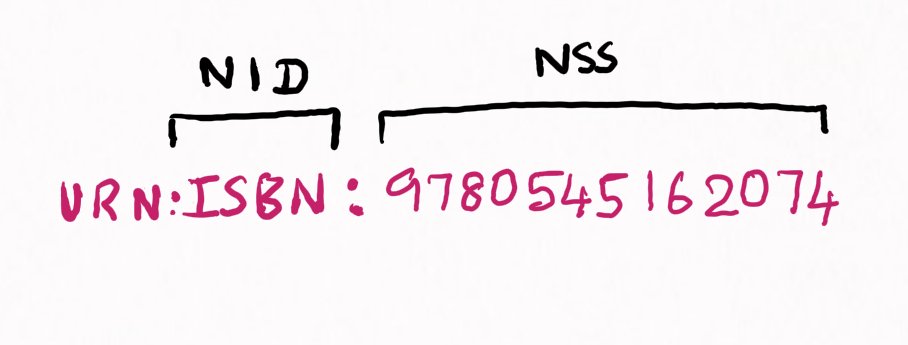 NID NSS
URN:ISBN: 9780545162074